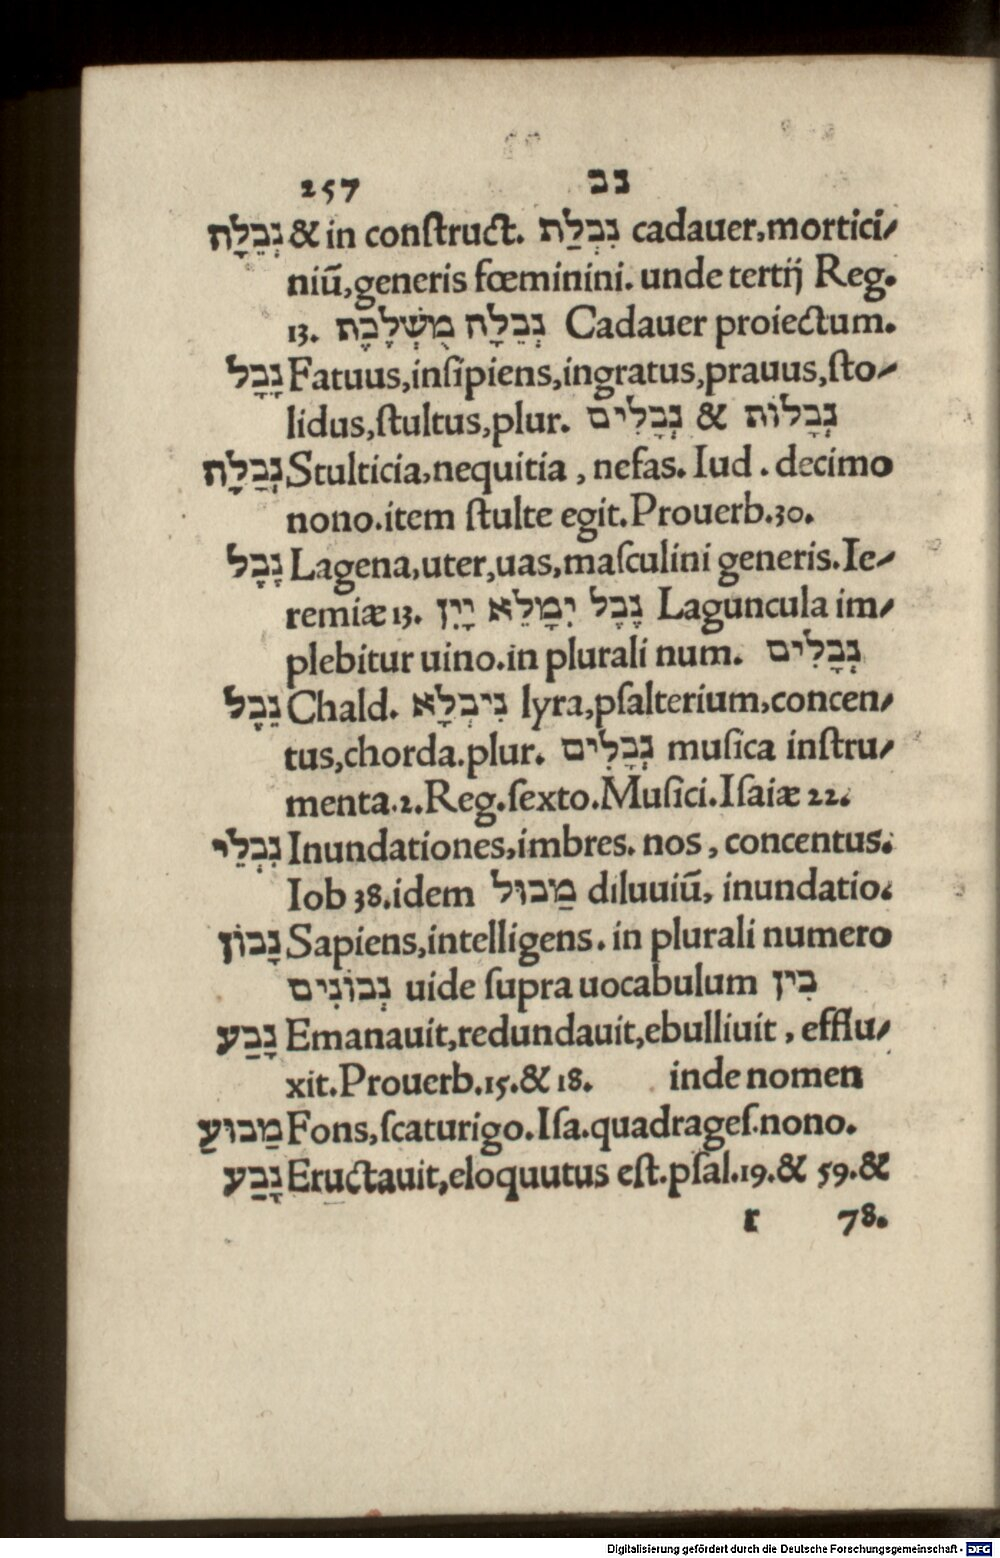 257 נב
נְבֵלָה & in conſtruct. נִבְלַת cadauer,mortici⸗
niū,generis fœminini. unde tertij Reg.
13. נְבֵלָה מֻשְׁלָכֶת Cadauer proiectum.
נָבָל Fatuus,inſipiens,ingratus,prauus,ſto⸗
lidus,ſtultus,plur. נְבָלִים & נְבָלוֹת
נְבָלָה Stulticia,nequitia , nefas. Iud . decimo
nono.item ſtulte egit.Prouerb.30.
נֶבֶל Lagena,uter,uas,maſculini generis.Ie⸗
remiæ 13. נֶבֶל יִמָלֵא יָיִן Laguncula im⸗
plebitur uino.in plurali num. נְבָלִים
נֵבֶל Chald. נִיבְלָא lyra,pſalterium,concen⸗
tus,chorda.plur. נְבָלִים muſica inſtru⸗
menta.2.Reg.ſexto.Muſici.Iſaiæ 22.
נִבְלֵי Inundationes,imbres. nos , concentus.
Iob 38.idem מַבּוּל diluuiū, inundatio.
נָבוֹן Sapiens,intelligens. in plurali numero
נְבוֹנִים uide ſupra uocabulum בִּין
נָבַע Emanauit,redundauit,ebulliuit , efflu⸗
xit.Prouerb.15.& 18. inde nomen
מַבּוּעַ Fons,ſcaturigo.Iſa.quadrageſ.nono.
נָבַע Eructauit,eloquutus eſt.pſal.19.& 59.&
r 78.
Digitalisierung gefördert durch die Deutsche Forschungsgemeinschaft - DFG